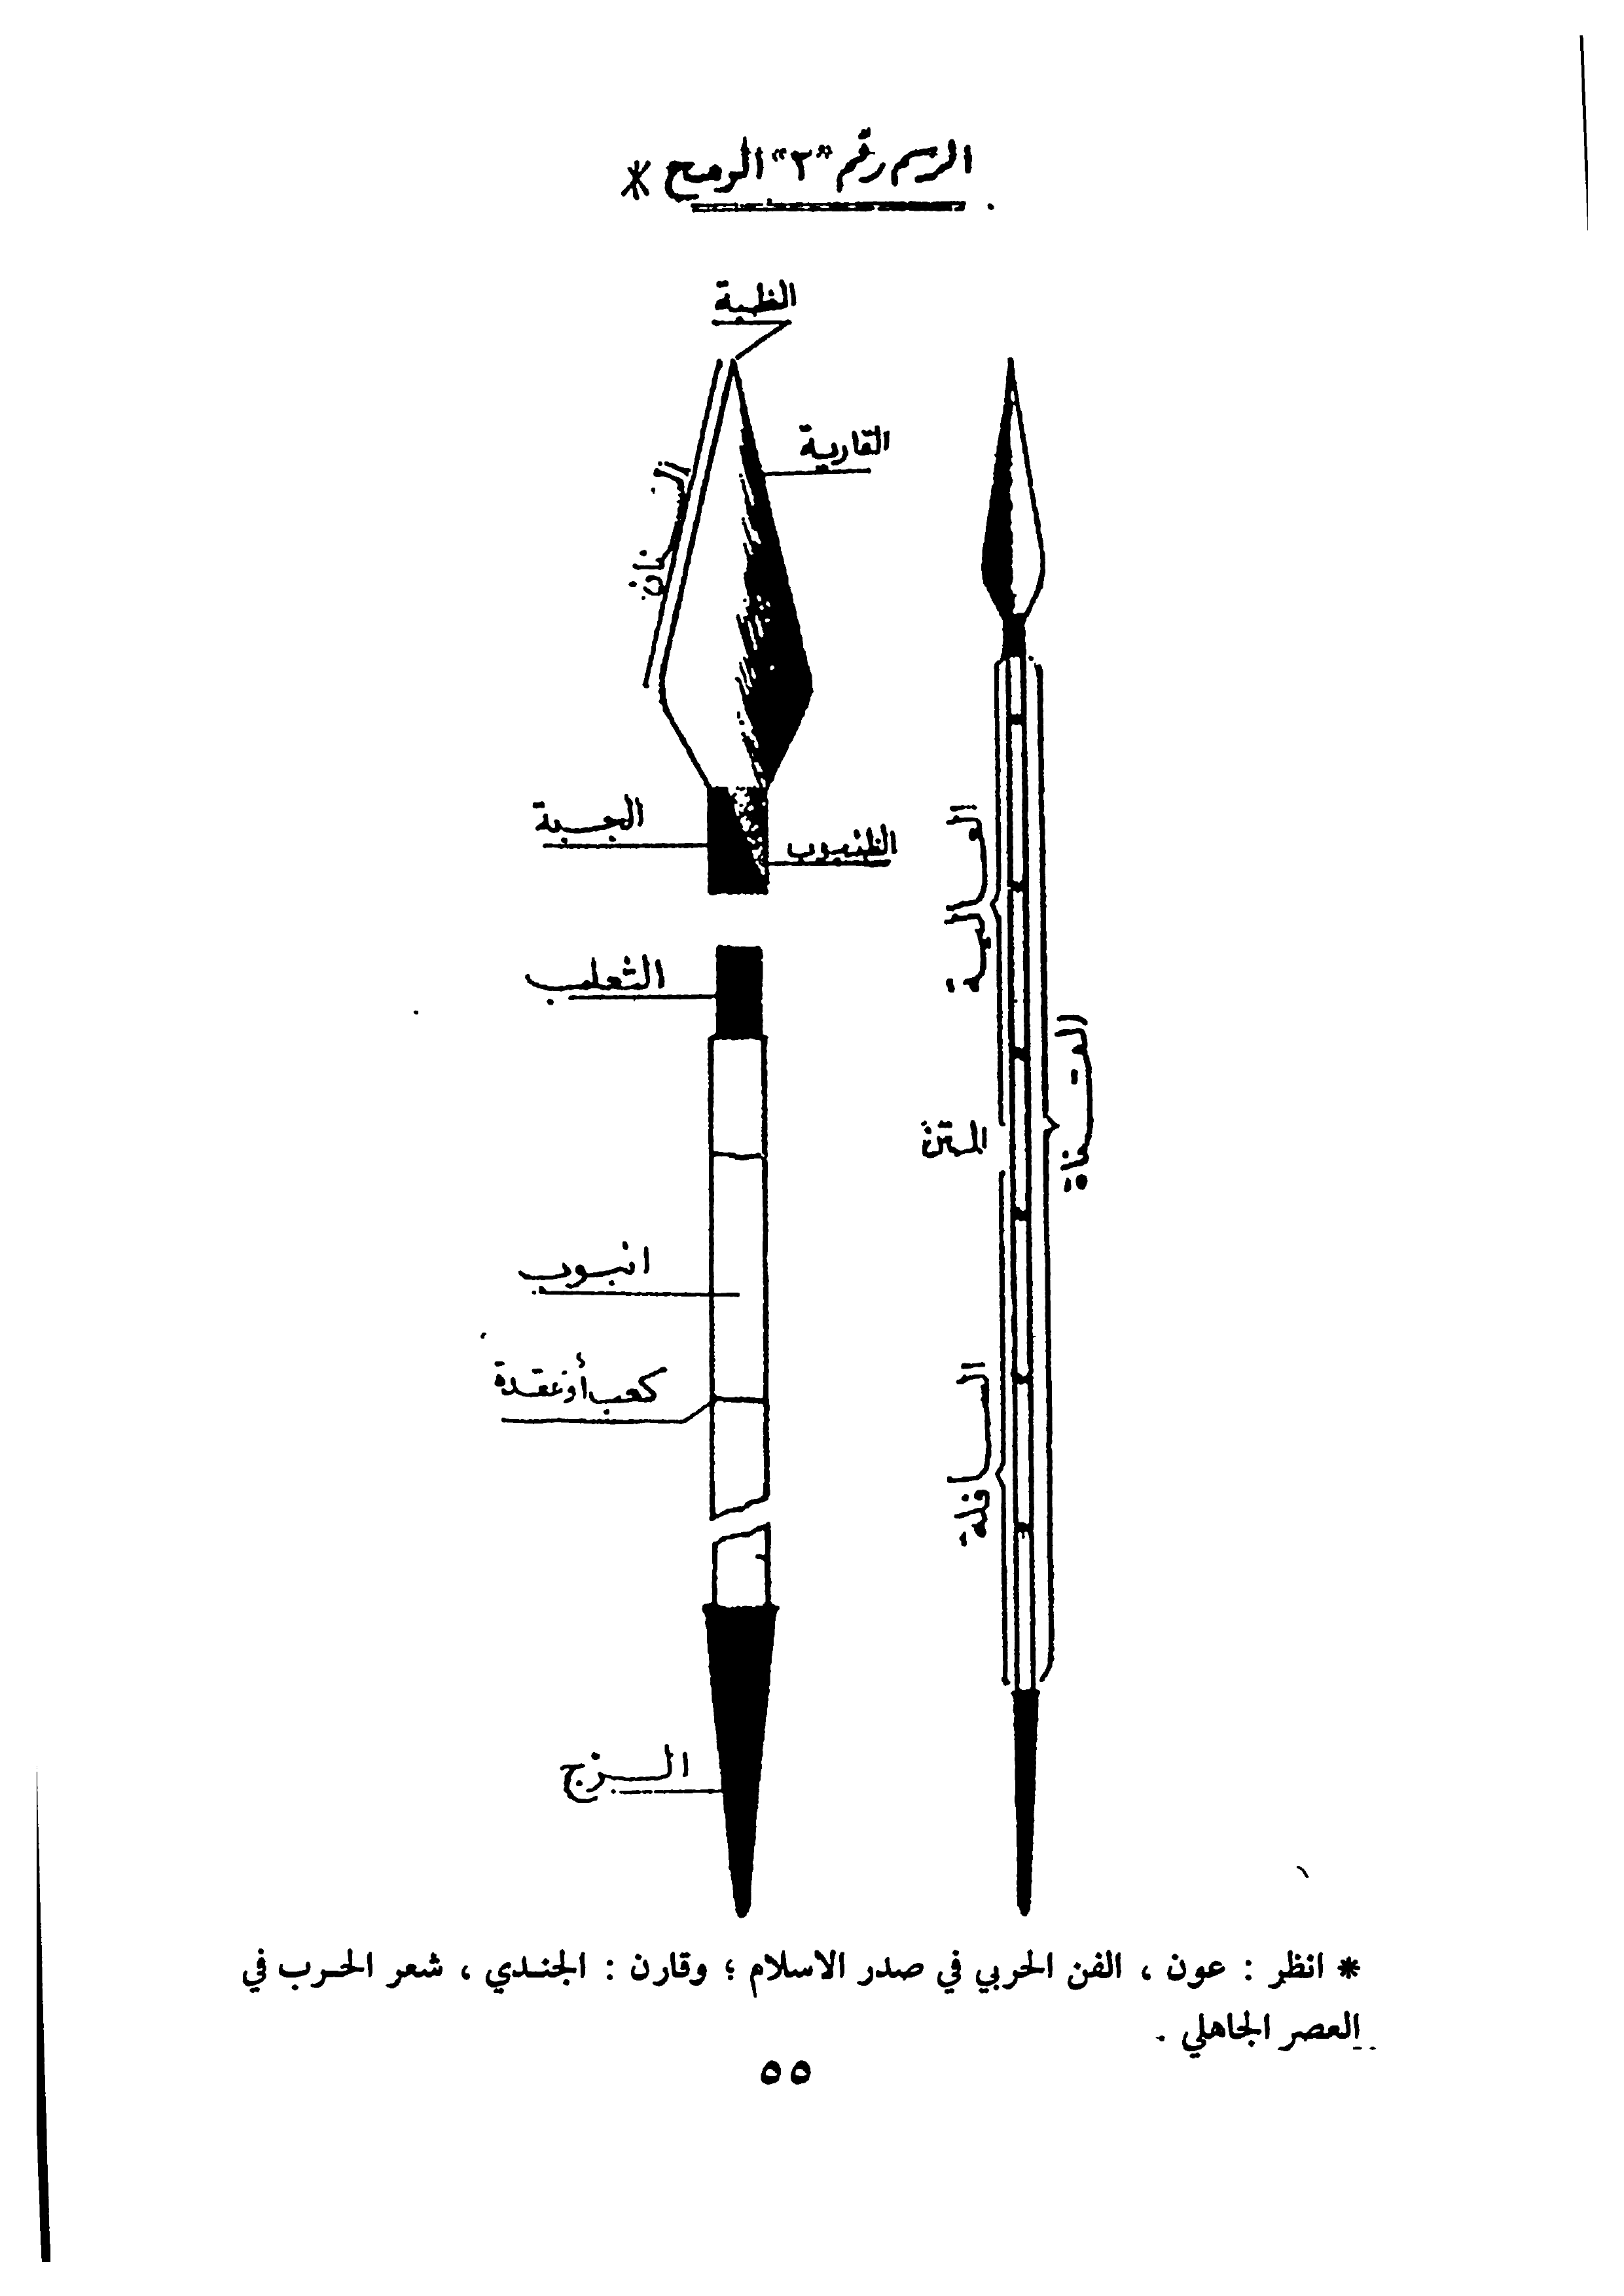 الرسم رقم "٣" الرمح *
الظبة
القارية
السنان
الجبة
الظنبوب
العالية
الثعلب
القناة
المتن
انبوب
كعب أو عقدة
السافلة
الزج
* انظر : عون ، الفن الحربي في صدر الاسلام ؛ وقارن : الجندي ، شعر الحرب في
العصر الجاهلي .
٥٥